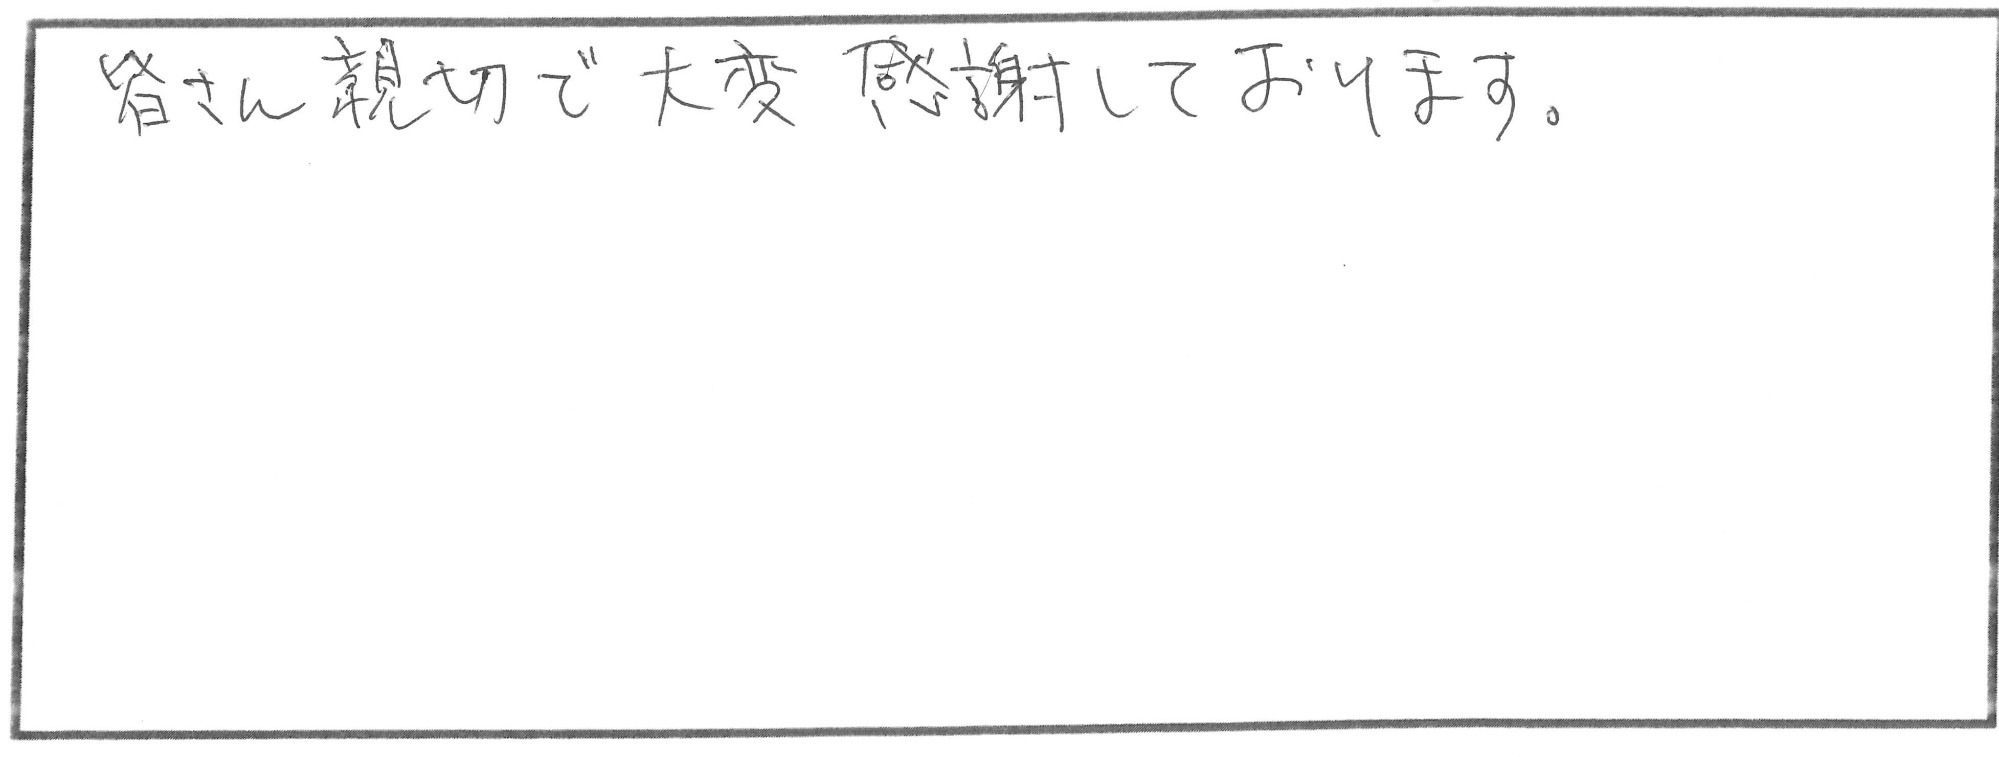 皆さん親切で大変感謝しております。